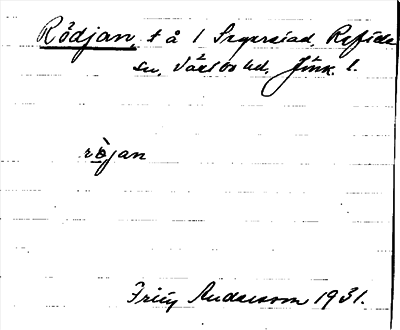 Rödjan, t å 1 Segerstad, Reftele
sn, Västbo hd, Jönk. l.
rö̀jan
Frity Andersson 1931.